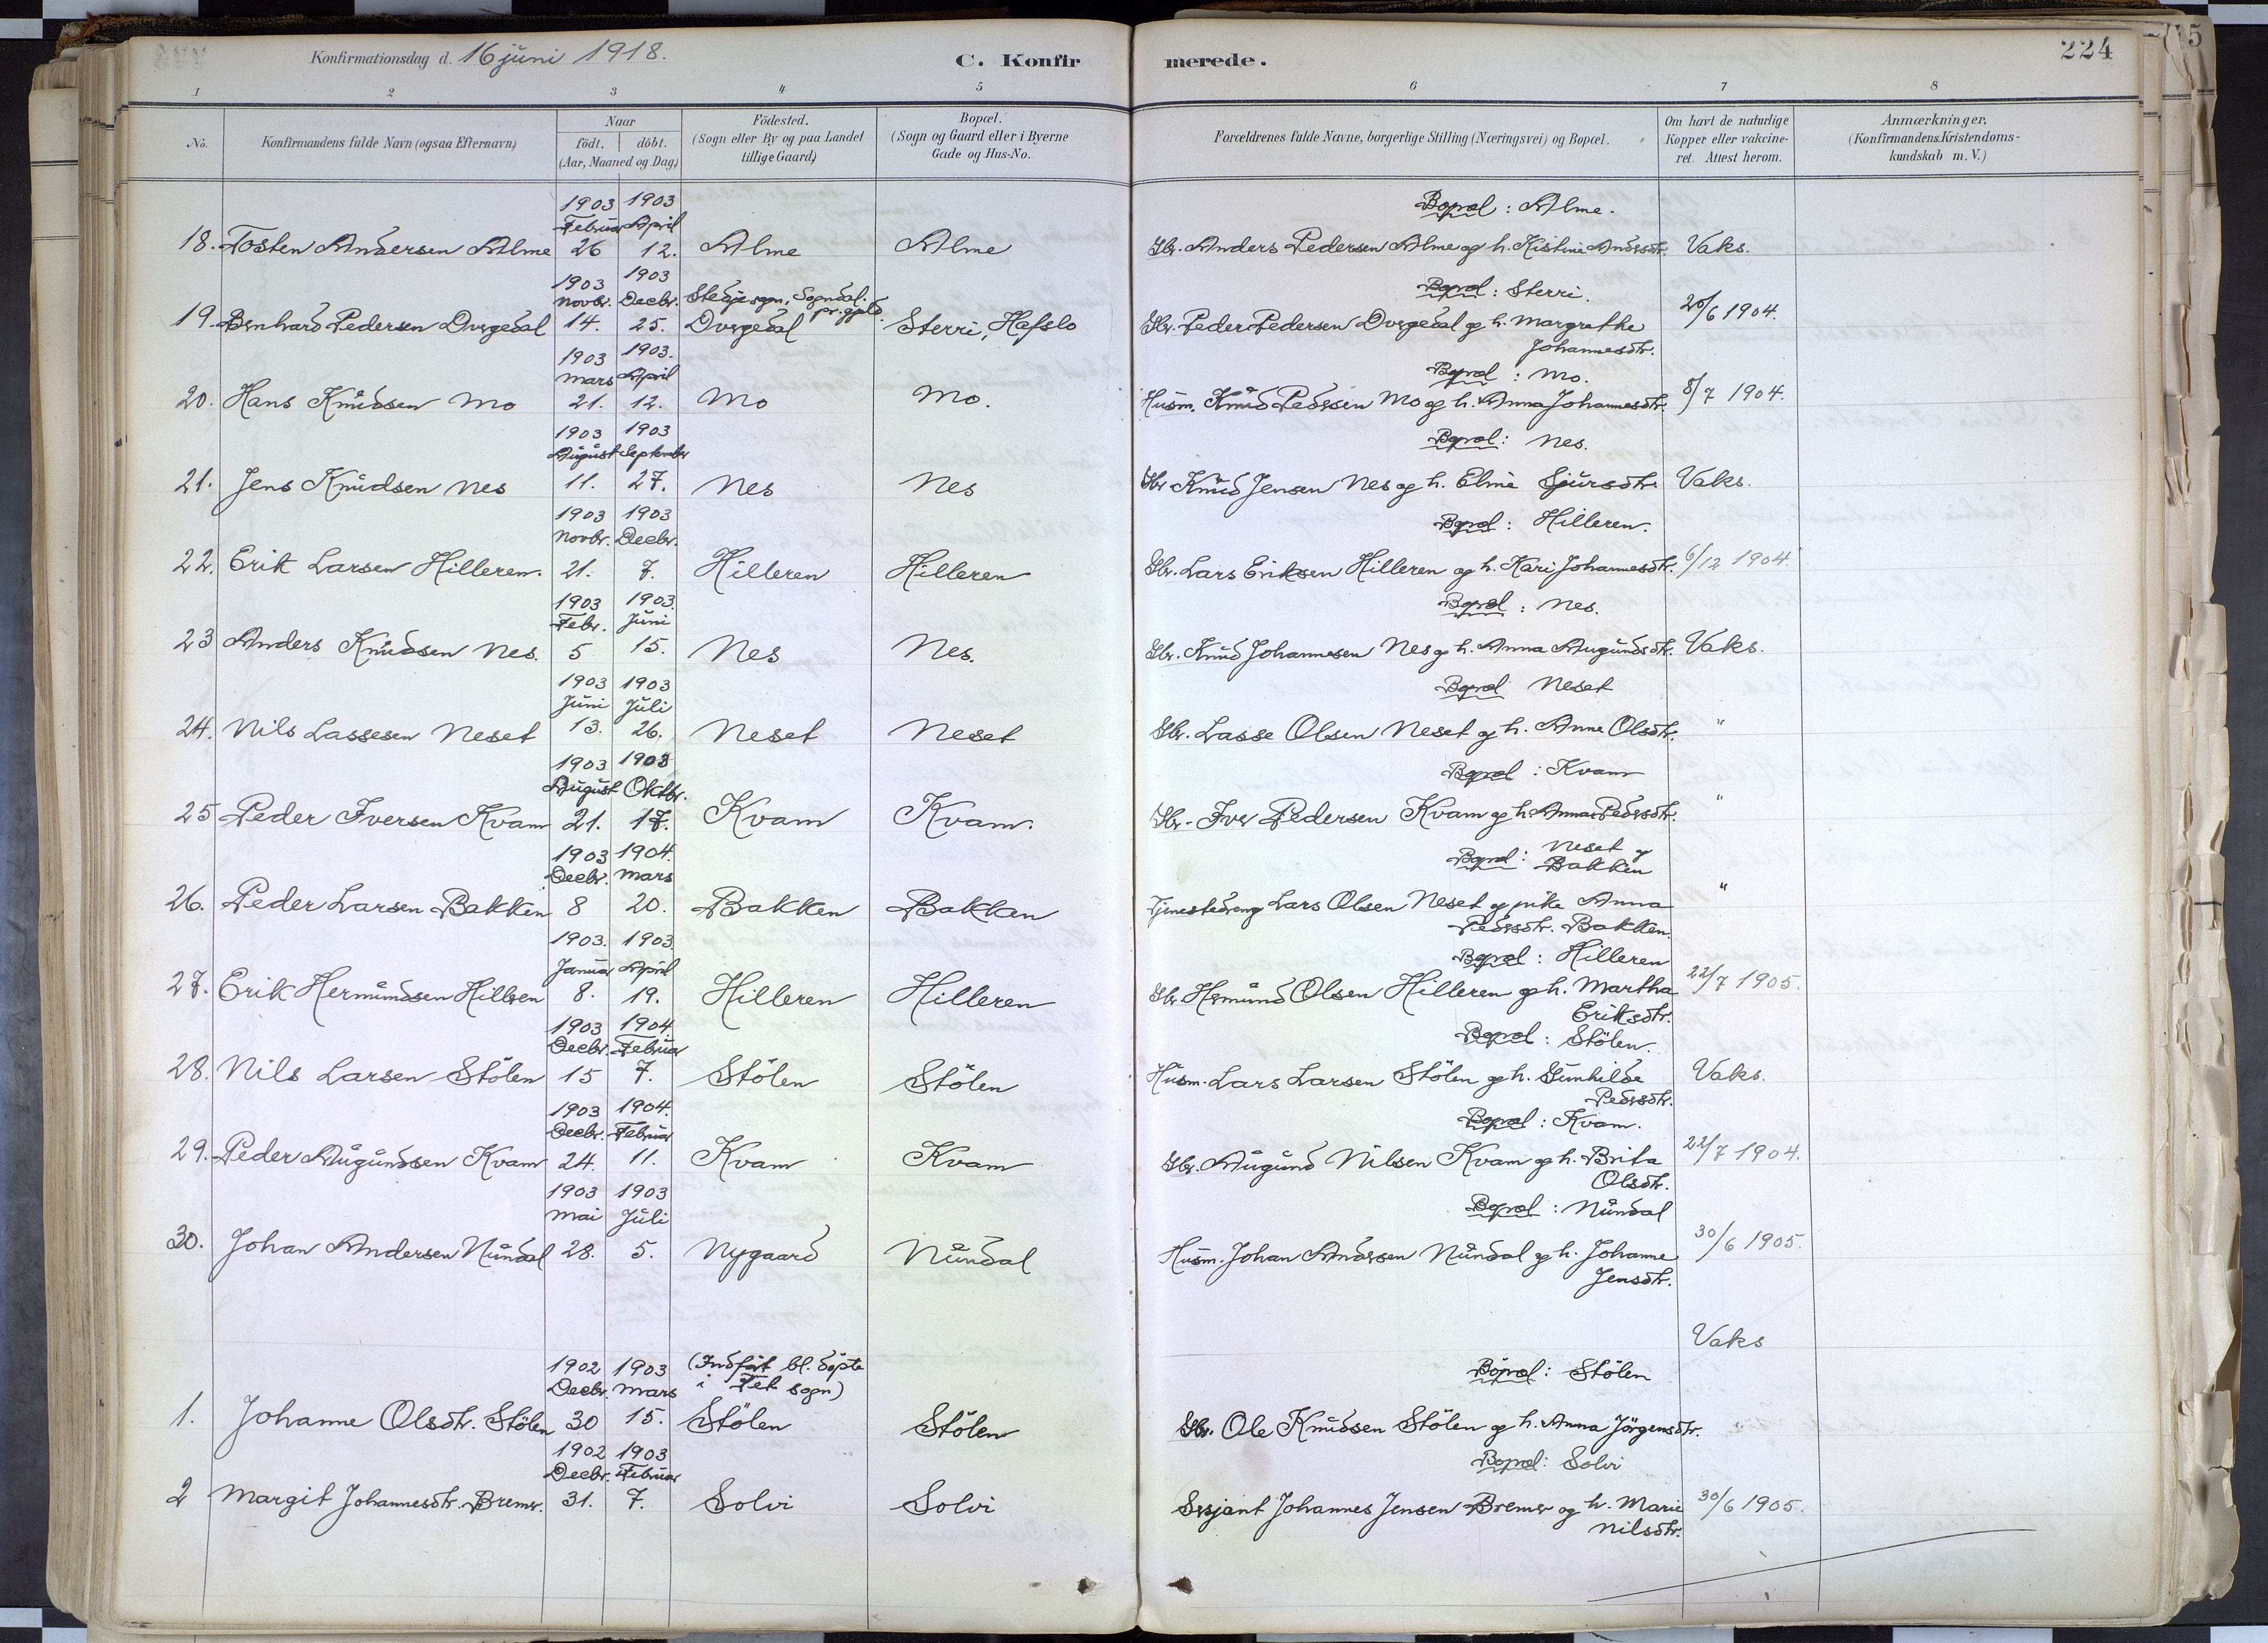 Konfirmationsdag d. 16 juni 1918.
C. Konfirmerede.
224
1 2 3 4 5 6 7 8
No.
Konfirmandens fulde Navn (ogsaa Efternavn)
Naar
födt. döbt.
(Aar, Maaned og Dag)
Födested.
(Sogn eller By og paa Landet
tillige Gaard)
Bopæl.
(Sogn og Gaard eller i Byerne
Gade og Hus-No.
Forældrenes fulde Navne, borgerlige Stilling (Næringsvei) og Bopæl.
Om havt de naturlige
Kopper eller vakcine-
ret. Attest herom.
Anmærkninger.
(Konfirmandens Kristendoms-
kundskab m.V.)
1903 1903 Bopæl: Alme.
Februar April
18. Tosten Andersen Alme 26 12. Alme Alme Gbr. Anders Pedersen Alme og h. Kistine Andersdtr. Vaks.
1903 1903 Bopæl: Sterri.
Novbr. Decbr. Stedje sogn, Sogndal pr.gjeld.
19. Bernhard Pedersen Dvergedal 14. 25. Dvergedal Sterri, Hafslo Gbr. Peder Pedersen Dvergedal og h. Margrethe 20/6 1904.
Johannesdtr.
1903 1903. Bopæl: Mo.
Mars April
20. Hans Knudsen Mo 21. 12. Mo Mo. Husm. Knud Pedersen Mo og h. Anna Johannesdtr. 8/7 1904.
1903 1903 Bopæl: Nes.
August September
21. Jens Knudsen Nes 11. 27. Nes Nes Gbr Knud Jensen Nes og h. Eline Sjursdtr. Vaks.
1903 1903 Bopæl: Hilleren.
Novbr. Decbr.
22. Erik Larsen Hilleren. 21. 7. Hilleren Hilleren Gbr. Lars Eriksen Hilleren og h. Kari Johannesdtr. 6/12 1904.
1903 1903. Bopæl: Nes.
Febr. Juni
23 Anders Knudsen Nes. 5 15. Nes Nes. Gbr. Knud Johannesen Nes og h. Anna Augundsdtr. Vaks.
1903 1903 Bopæl Neset
Juni Juli
24. Nils Lassesen Neset 13. 26. Neset Neset Gbr. Lasse Olsen Neset og h. Anne Olsdtr. "
1903 1903 Bopæl: Kvam
August Oktbr.
25 Peder Iversen Kvam 21. 17. Kvam Kvam. Gbr. Iver Pedersen Kvam og h. Anna Pedersdtr. "
1903 1904. Bopæl: Neset og
Decbr. Mars Bakken
26. Peder Larsen Bakken 8 20. Bakken Bakken Tjenestedreng Lars Olsen Neset og pike Anna "
Pedersdtr. Bakken.
1903. 1903. Bopæl: Hilleren
Januar April
27. Erik Hermundsen Hilleren 8. 19. Hilleren Hilleren Gbr Hermund Olsen Hilleren og h. Martha 22/7 1905.
Eriksdtr.
1903 1904. Bopæl: Stölen.
Decbr. Februar
28. Nils Larsen Stölen 15 7. Stölen Stölen Husm. Lars Larsen Stölen og h. Gunhilde Vaks.
Pedersdtr.
1903 1904. Bopæl: Kvam.
Decbr. Februar
29. Peder Augundsen Kvam 24. 11. Kvam Kvam Gbr. Augund Nilsen Kvam og h. Brita 22/7 1904.
Olsdtr.
1903 1903 Bopæl: Nundal
Mai Juli
30. Johan Andersen Nundal 28. 5. Nygaard Nundal Husm. Johan Andersen Nundal og h. Johanne 30/6 1905.
Jensdtr.
Vaks
1902 1903 (Indfört bl. döpte Bopæl: Stölen
Decbr. Mars i Fet sogn)
1. Johanne Olsdtr. Stölen 30 15. Stölen Stölen Gbr. Ole Knudsen Stölen og h. Anna Jörgensdtr. "
1902 1903 Bopæl: Solvi
Decbr. Februar
2 Margit Johannesdtr. Bremer. 31. 7. Solvi Solvi Sersjant Johannes Jensen Bremer og h. Marie 30/6 1905.
Nilsdtr.